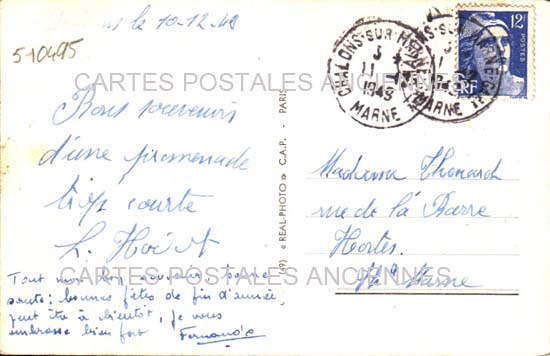 le 10-12-49
5-10495
Bons souvenirs
d'une promenade
trop courte
Tout mon bon souvenir bonne
santé: bonnes fêtes de fin d'année,
peut être à bientôt, je vous
embrasse bien fort
(49) « REAL-PHOTO » C.A.P. - PARIS
CHALONS-SUR-MARNE
11-12
1949
MARNE
12F
POSTES
RF
Madame
rue de la Barre
Hortes
Hte Marne
CARTES POSTALES ANCIENNES
CARTES POSTALES ANCIENNES